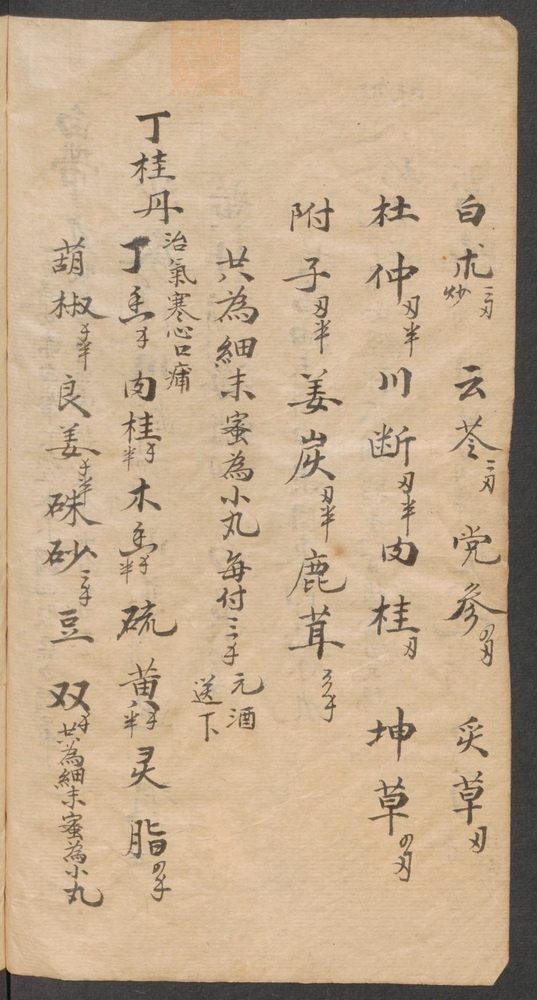 白朮炒二刄 云苓二刄 党参四刄 炙草刄
杜仲刄半 川断刄半 肉桂刄 坤草四刄
附子刄半 姜炭刄半 鹿茸三手
共為細末蜜為小丸每付三手元酒送下
丁桂丹治氣寒心口痛
丁香手 肉桂手半 木香手半 硫黄手半 灵脂四手
葫椒手半 良姜手半 硃砂二手 豆双手共為細末蜜為小丸